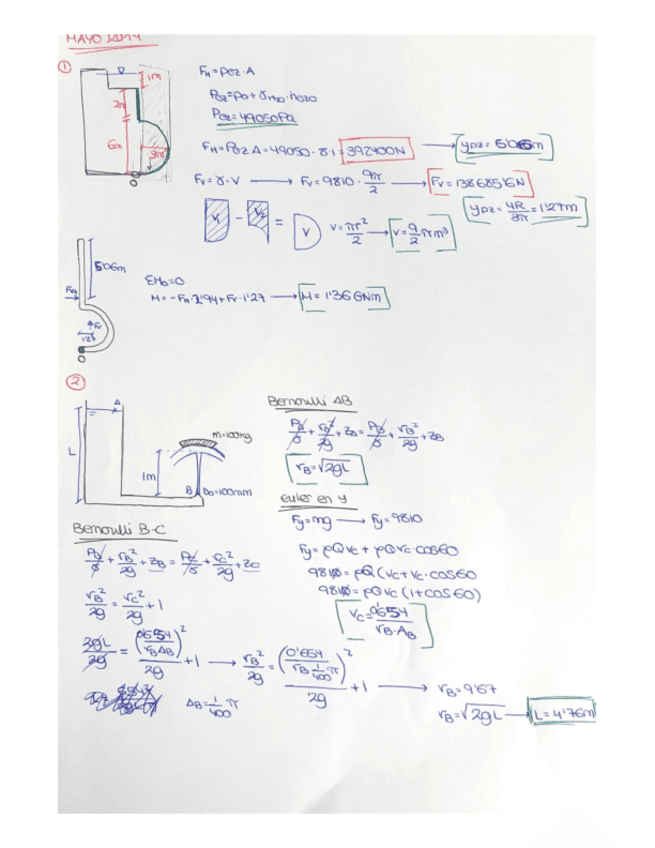 MAYO 2014
①
1m
2m
6m
3m
O
F_H = P_CG · A
P_CG = P_0 + γ_H2O · h_CG0
P_CG = 49050 Pa
F_H = P_CG · A = 49050 · 8 · 1 = 392400 N → y_PZ = 5'06m
F_V = γ · V → F_V = 9810 · 9π/2 → F_V = 138685'6N
y_PZ = 4R/3π = 1'27m
V_1 - V_2 = V
V = πr²/2 → V = 9/2 π m³
5'06m
F_H
F_V
1'27
O
ΣM_O = 0
M = -F_H · 2'94 + F_V · 1'27 → M = 1'36 GNm
②
A
L
m=100kg
1m
B
D_0=100mm
Bernoulli AB
P_A/γ + v_A²/2g + z_A = P_B/γ + v_B²/2g + z_B
v_B = √2gL
Euler en y
Fy = mg → Fy = 9810
Fy = ρQv_C + ρQv_C · cos60
9810 = ρQ (v_C + v_C · cos60
9810 = ρQv_C (1 + cos60)
v_C = 0'654 / v_B · A_B
Bernoulli B-C
P_B/γ + v_B²/2g + z_B = P_C/γ + v_C²/2g + z_C
v_B²/2g = v_C²/2g + 1
2gL/2g = (0'654/v_B A_B)²/2g + 1 → v_B²/2g = (0'654/v_B 1/400 π)²/2g + 1 → v_B = 9'67
A_B = 1/400 π
v_B = √2gL → L = 4'76m